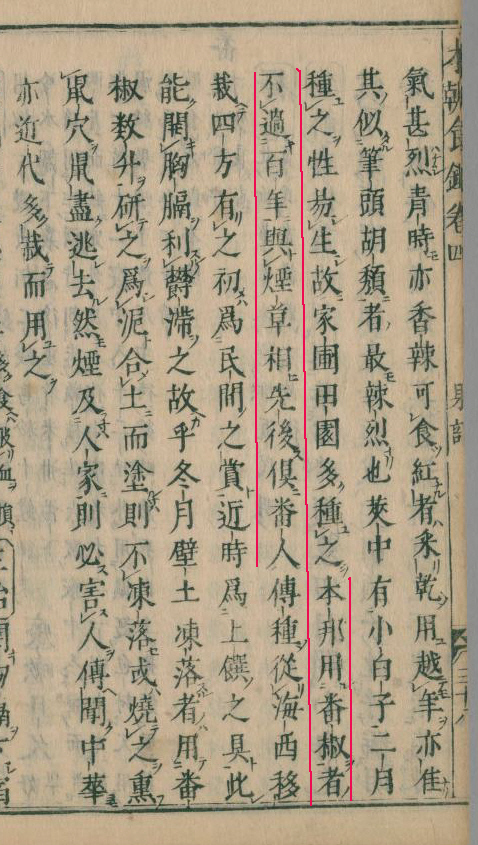 氣甚烈青時亦香辣可食紅者采乾用越年亦佳
其似筆頭胡頽者最辣烈也莢中有小白子二月
種之性易生故家圃田園多種之本邦用番椒者
不過百年與煙草相先後倶番人傳種從海西移
栽四方有之初爲民間之賞近時爲上饌之具此
能開胸膈利欝滯之故乎冬月壁土凍落者用番
椒数升研之爲泥合土而塗則不凍落或燒之熏
鼠穴鼠盡逃去然煙及人家則必害人傳聞中華
亦近代多栽而用之